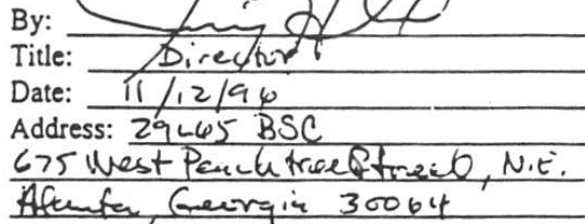 By:
Title: Director
Date: 11/12/96
Address: 29W45 BSC
675 West Peachtree Street, N.E.
Atlanta, Georgia 30064